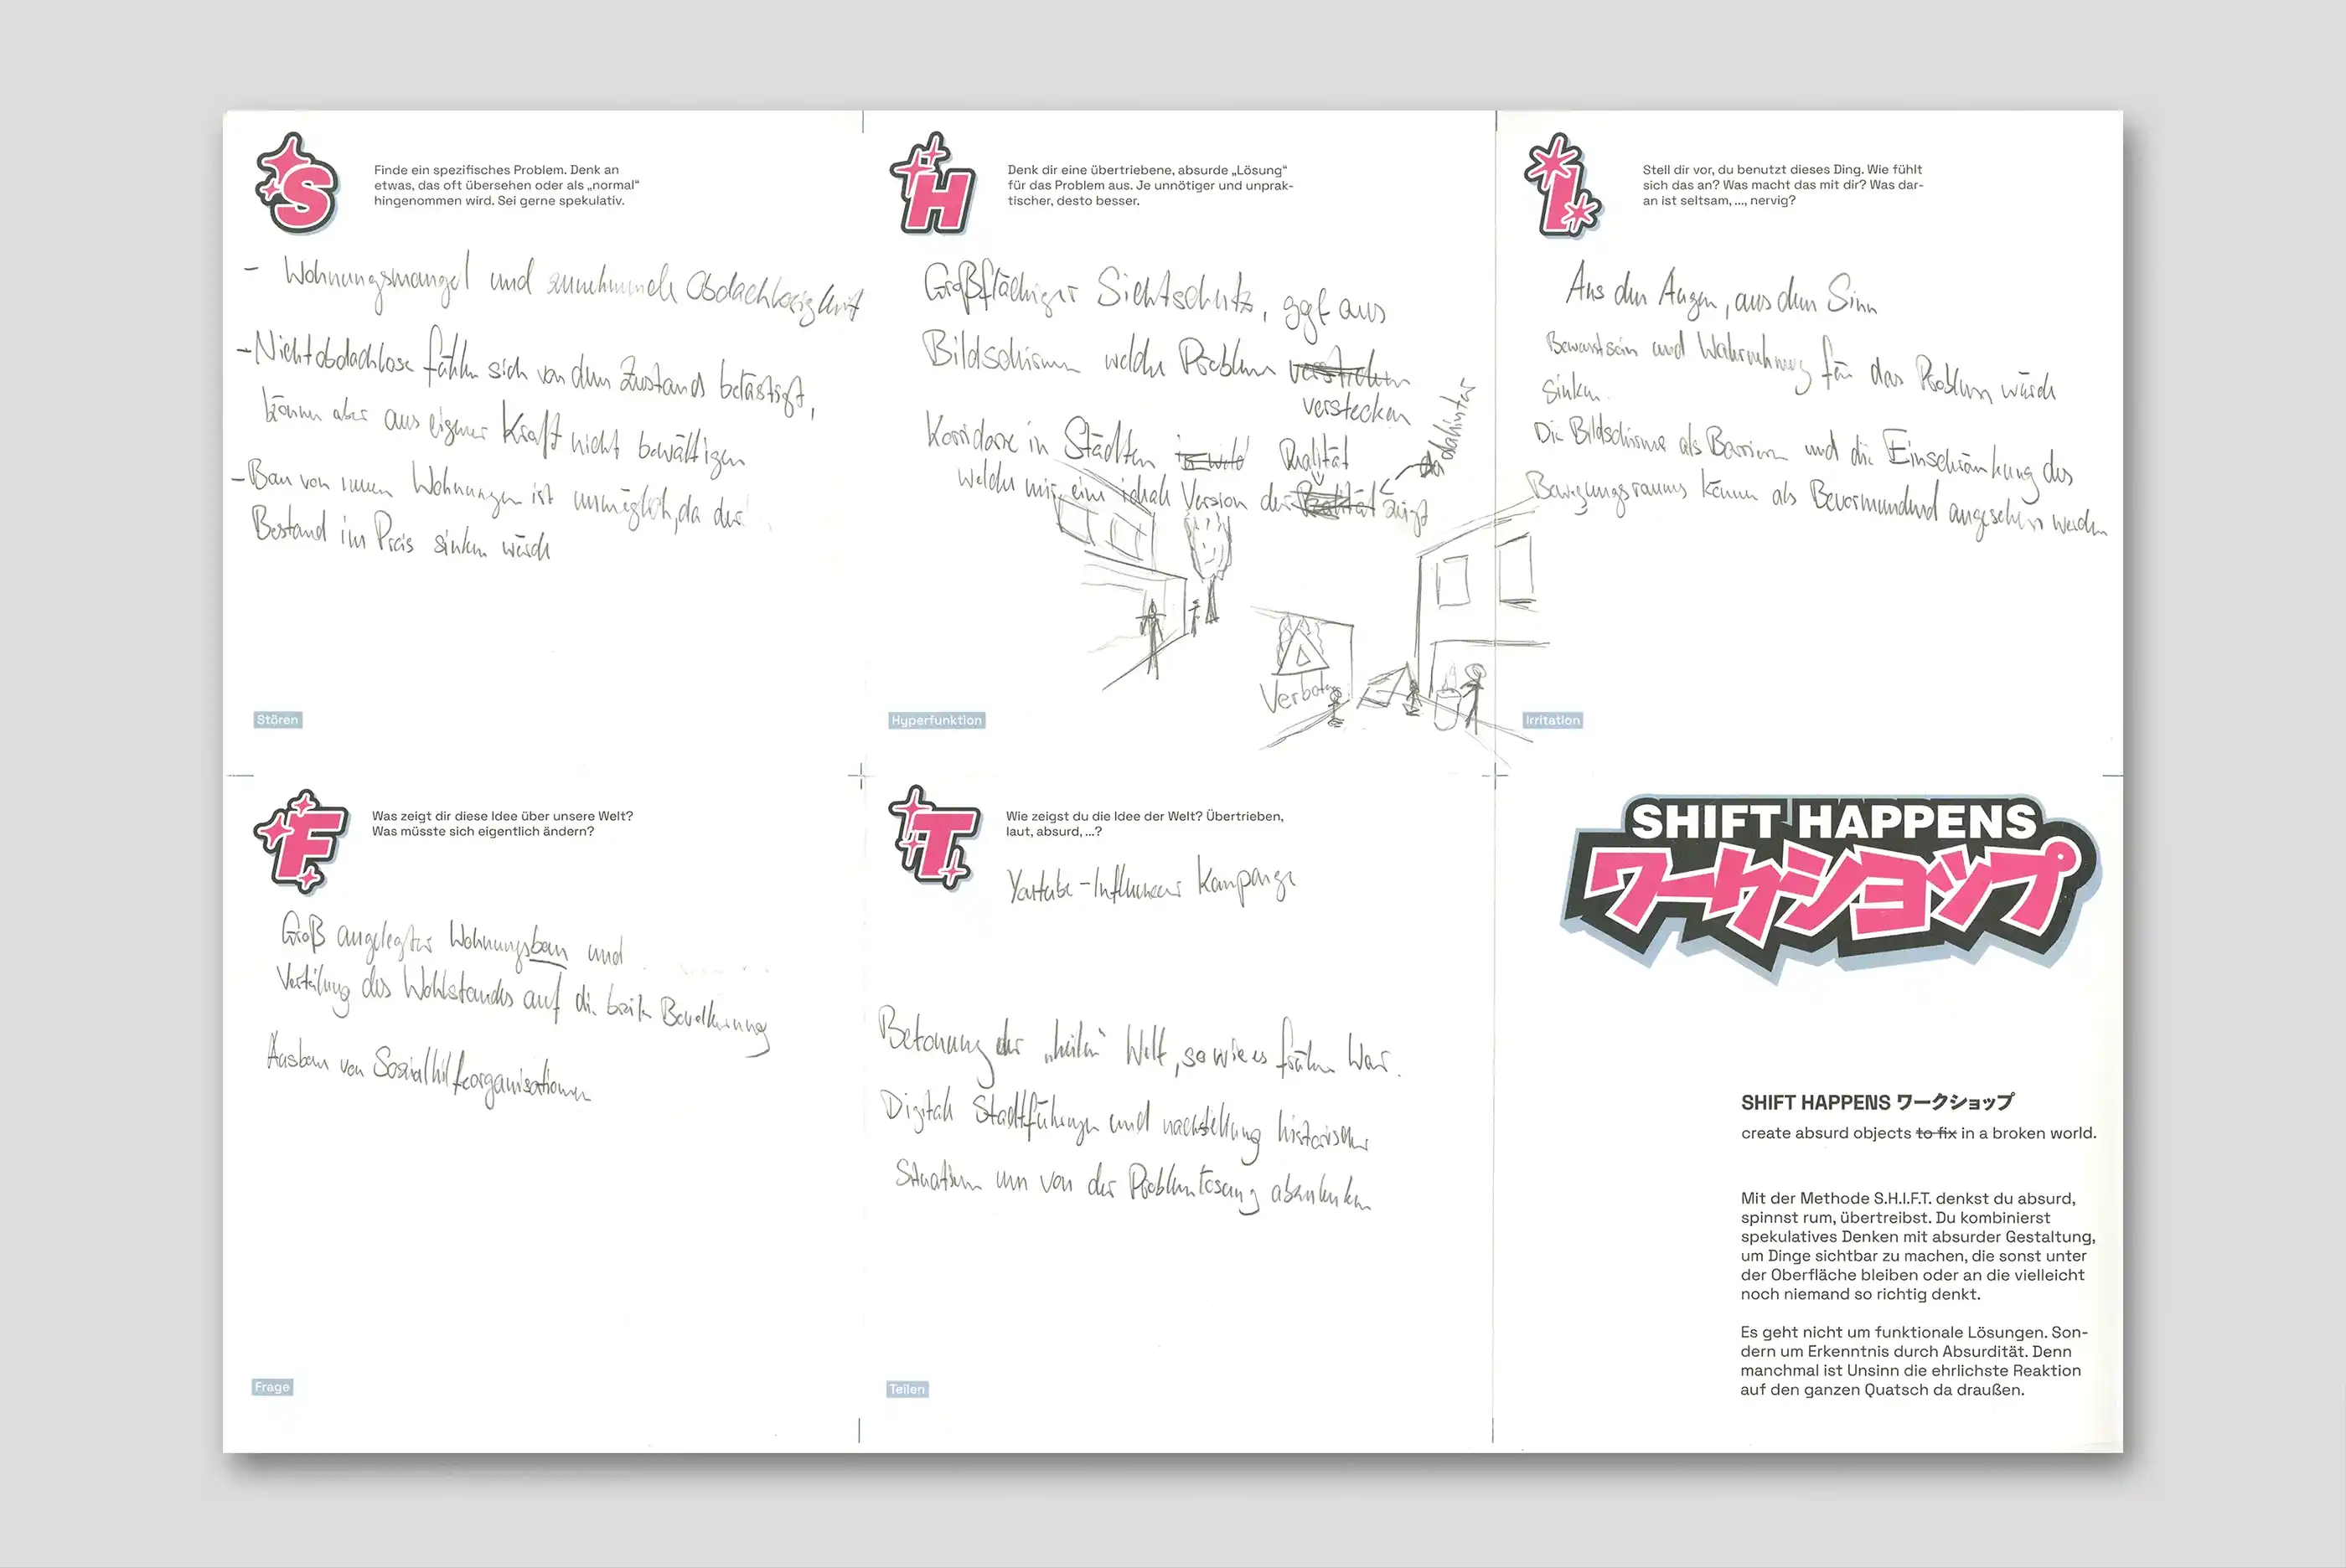 S
Finde ein spezifisches Problem. Denk an
etwas, das oft übersehen oder als „normal“
hingenommen wird. Sei gerne spekulativ.
- Wohnungsmangel und zunehmende Obdachlosigkeit
- Nichtobdachlose fühlen sich von dem Zustand belästigt,
können aber aus eigener Kraft nicht bewältigen
- Bau von neuen Wohnungen ist unmöglich, da der
Bestand im Preis sinken würde
Stören
H
Denk dir eine übertriebene, absurde „Lösung“
für das Problem aus. Je unnötiger und unprak-
tischer, desto besser.
Großflächiger Sichtschutz, ggf aus
Bildschirmen welche Probleme
verstecken
Korridore in Städten
Qualität
welche mir eine ideale Version der zeigt
dahinter
Verboten
Hyperfunktion
I
Stell dir vor, du benutzt dieses Ding. Wie fühlt
sich das an? Was macht das mit dir? Was dar-
an ist seltsam, ..., nervig?
Aus den Augen, aus dem Sinn
Bewusstsein und Wahrnehmung für das Problem würde
sinken.
Die Bildschirme als Barriere und die Einschränkung des
Bewegungsraums können als Bevormundend angesehen werden
Irritation
F
Was zeigt dir diese Idee über unsere Welt?
Was müsste sich eigentlich ändern?
Groß angelegter Wohnungsbau und
Verteilung des Wohlstandes auf die breite Bevölkerung
Ausbau von Sozialhilfeorganisationen
Frage
T
Wie zeigst du die Idee der Welt? Übertrieben,
laut, absurd, ...?
Youtube-Influencer Kampange
Betonung der „heilen“ Welt, so wie es früher war.
Digitale Stadtführungen und nachstellung historischer
Situationen um von der Problemlösung abzulenken
Teilen
SHIFT HAPPENS
ワークショップ
SHIFT HAPPENS ワークショップ
create absurd objects to fix in a broken world.
Mit der Methode S.H.I.F.T. denkst du absurd,
spinnst rum, übertreibst. Du kombinierst
spekulatives Denken mit absurder Gestaltung,
um Dinge sichtbar zu machen, die sonst unter
der Oberfläche bleiben oder an die vielleicht
noch niemand so richtig denkt.
Es geht nicht um funktionale Lösungen. Son-
dern um Erkenntnis durch Absurdität. Denn
manchmal ist Unsinn die ehrlichste Reaktion
auf den ganzen Quatsch da draußen.